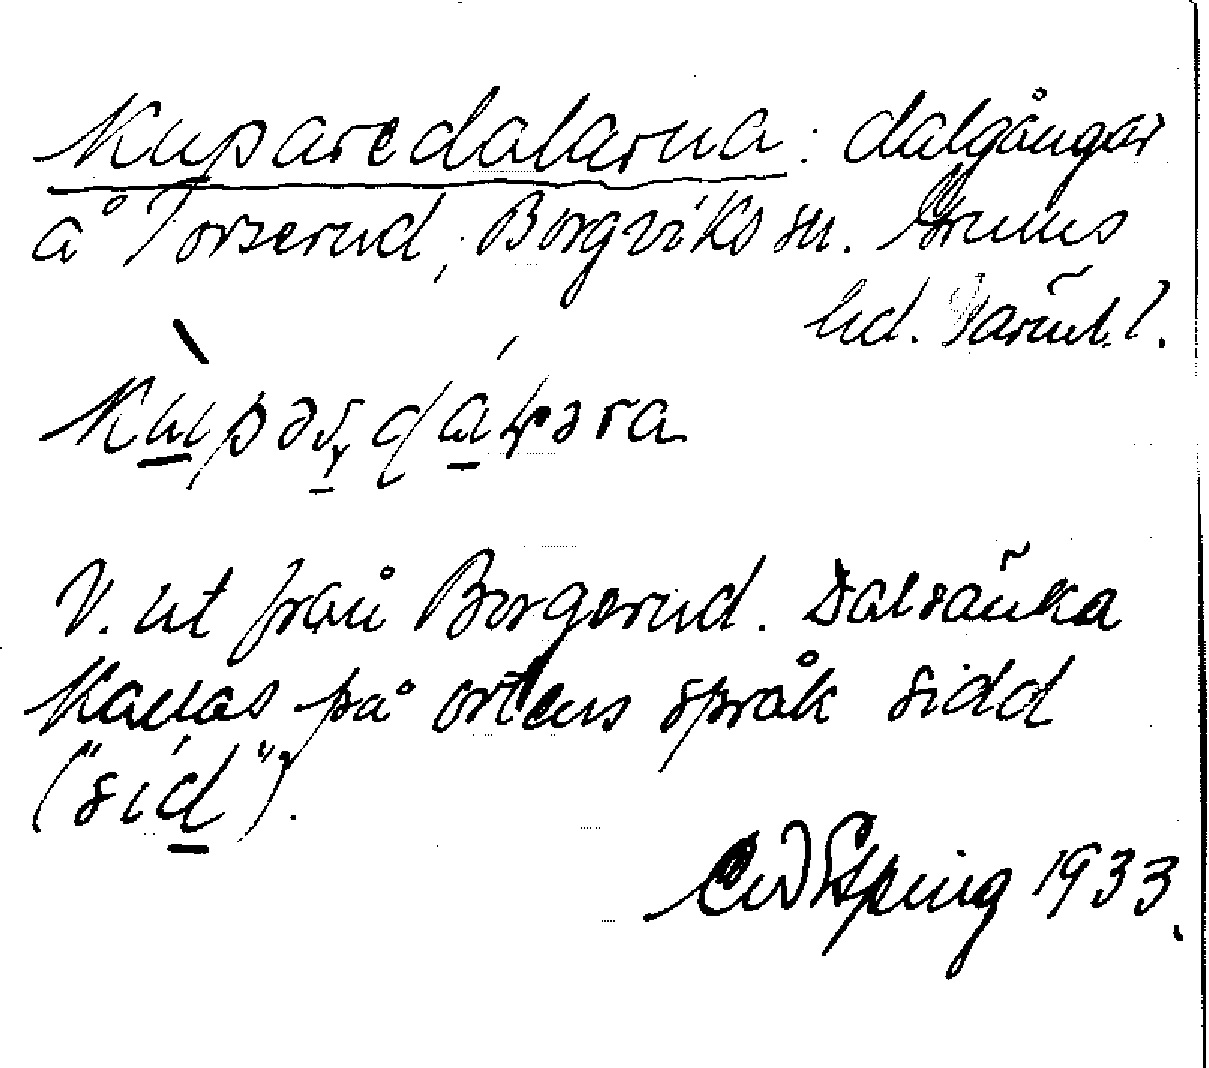 Kuparedalarna: dalgångar
å Torserud, Borgviks sn. Grums
hd. Värml.
V. ut från Borgerud. Dalsänka
kallas på ortens språk sidd
("sid").
1933.